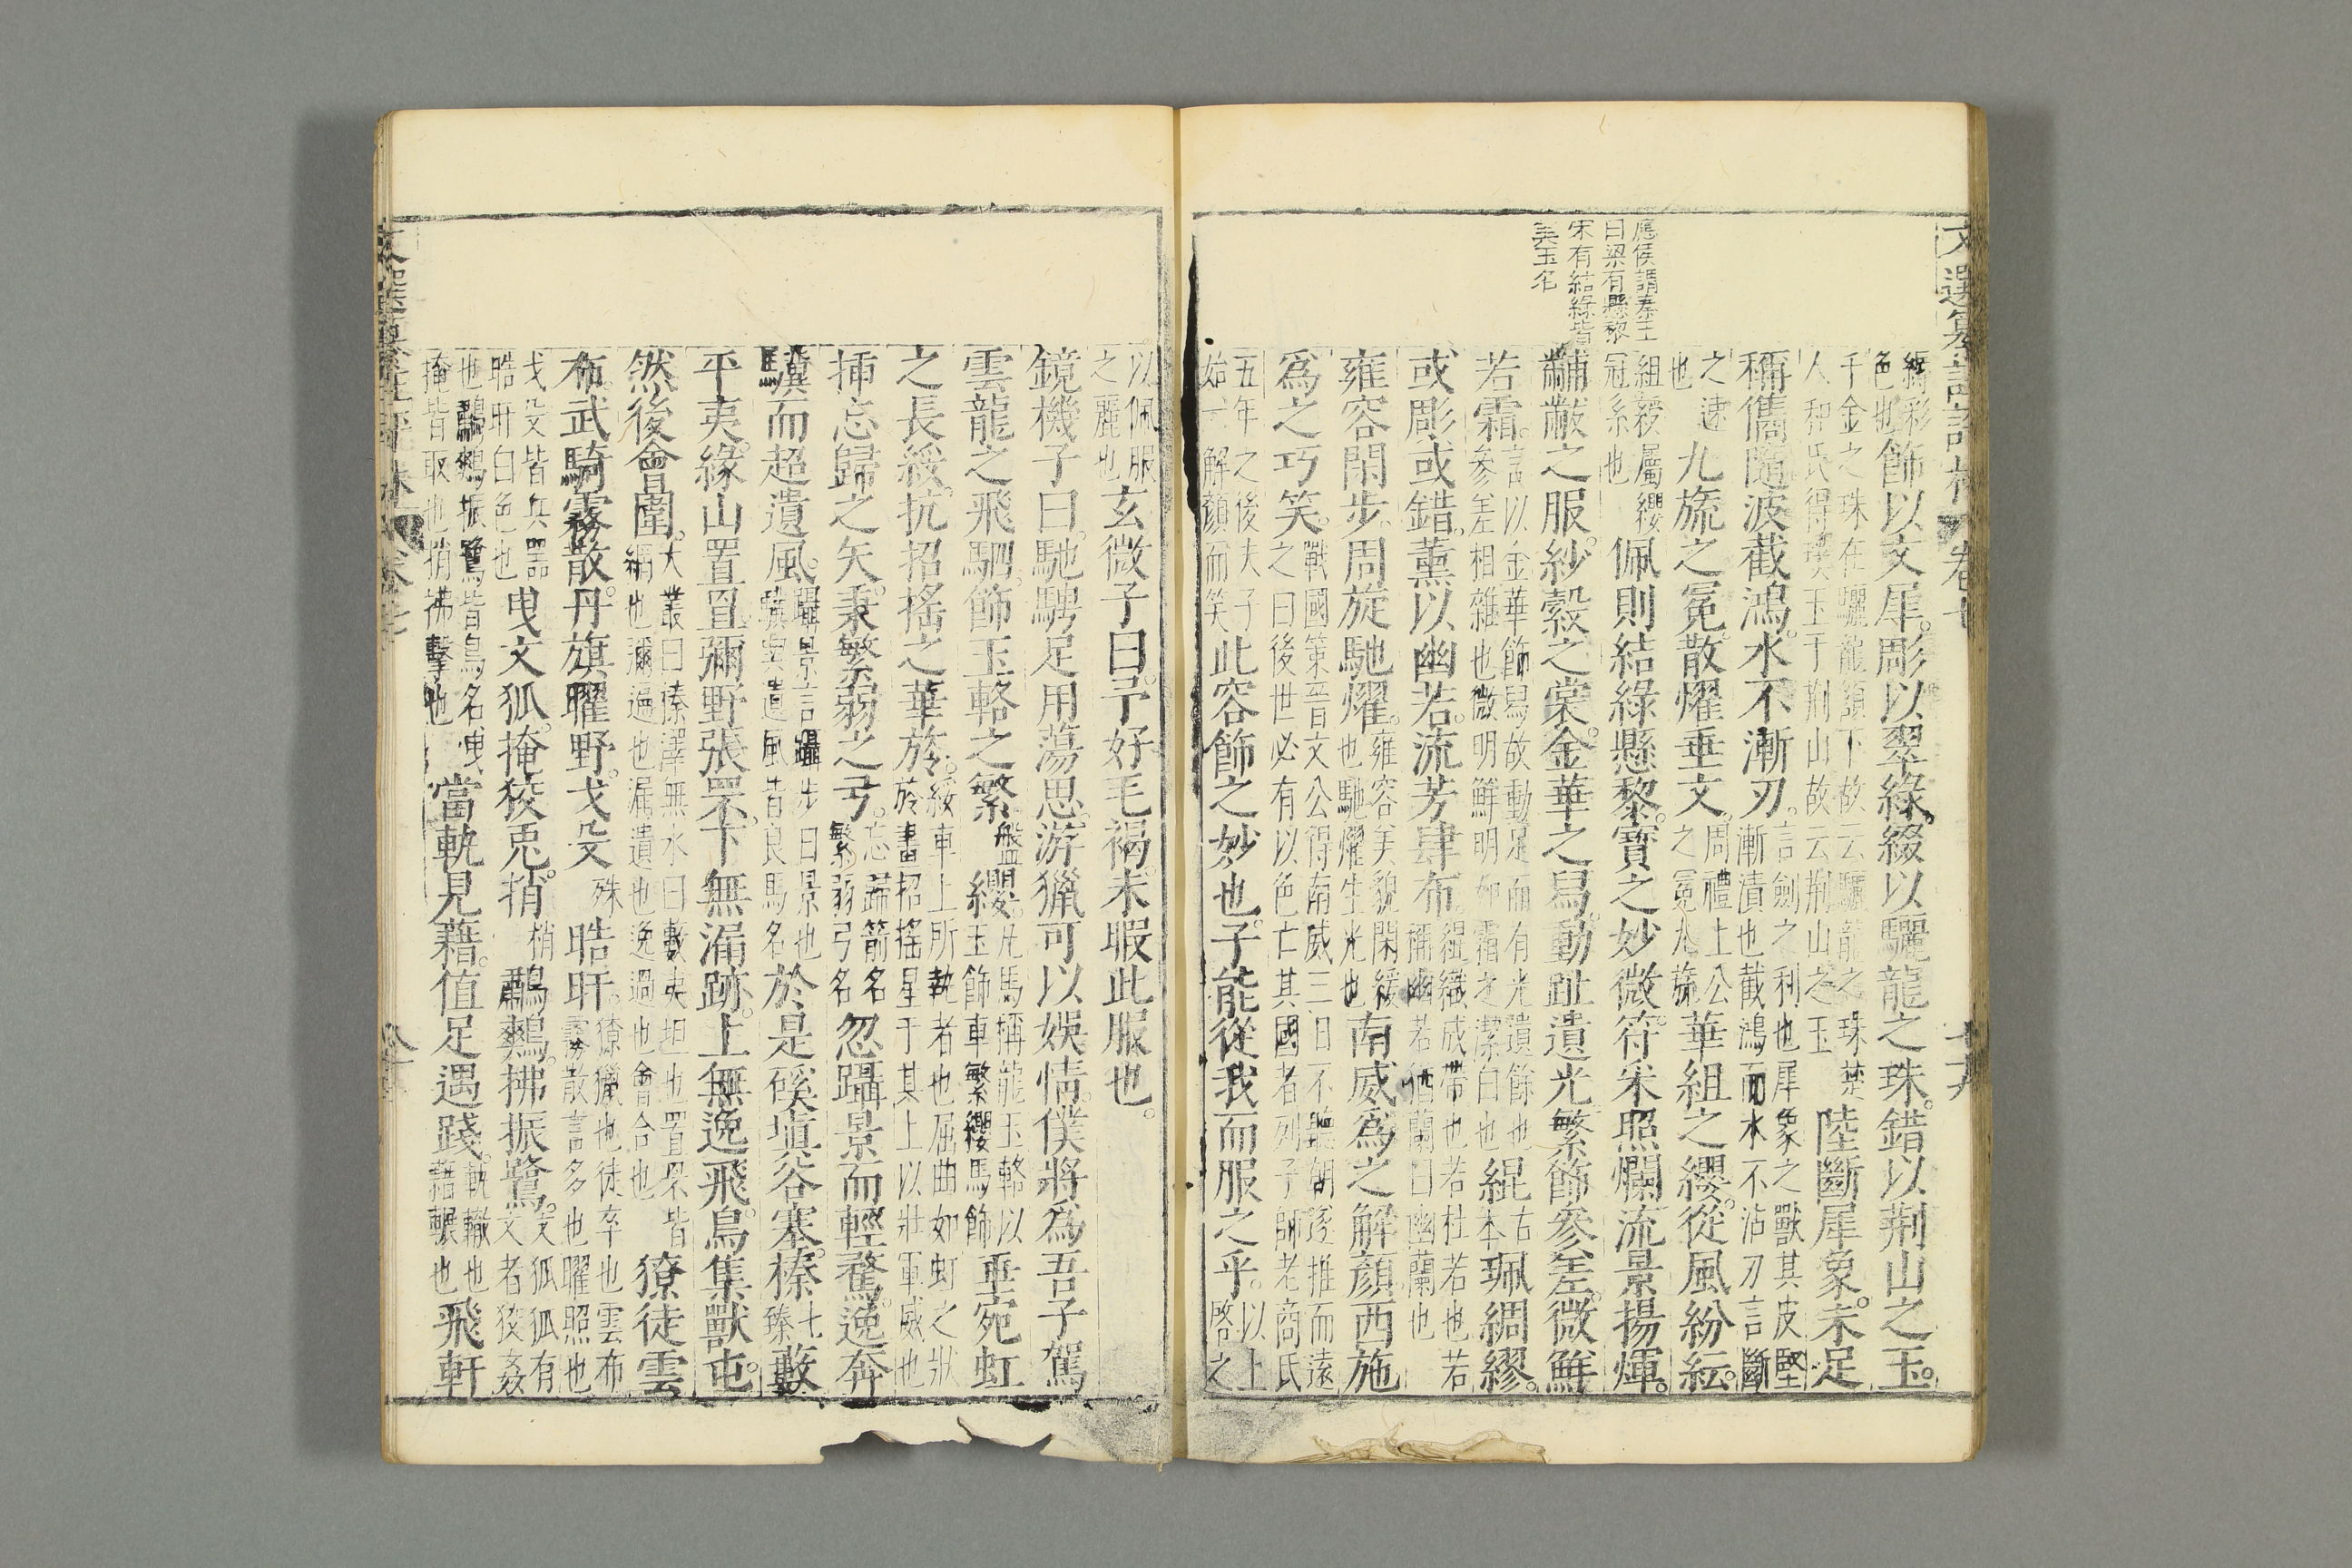 應侯謂秦王
曰梁有懸黎
宋有結綠皆
美玉名
縟彩色也飾以文犀。彫以翠綠。綴以驪龍之珠。錯以荊山之玉。
千金之珠在驪龍頷下故云驪龍之珠楚人和氏得璞玉于荊山故云荊山之玉陸斷犀象。未足
稱儁。隨波截鴻。水不漸刃。言劍之利也犀象之獸其皮堅漸漬也截鴻而水不沾刃言斷
之速也九旒之冕。散燿垂文。周禮上公之冕九旒華組之纓。從風紛紜。
組綬屬纓冠系也佩則結綠懸黎。寶之妙微。符采照爛。流景揚煇。
黼黻之服。紗縠之裳。金華之舄。動趾遺光。繁飾參差。微鮮
若霜。言以金華飾舄故動足而有光遺餘也參差相雜也微明鮮明如霜之潔白也緄右本珮綢繆。
或彫或錯。薰以幽若。流芳肆布。緄織成帶也若杜若也若稱幽若猶蘭曰幽蘭也
雍容閒步。周旋馳燿。雍容美貌閑緩也馳燿生光也南威為之解顏。西施
為之巧笑。戰國策晉文公得南威三日不聽朝遂推而遠之曰後世必有以色亡其國者列子師老商氏
五年之後夫子始一解顏而笑此容飾之妙也。子能從我而服之乎。以上啓之
以佩服之麗也玄微子曰。予好毛褐。未暇此服也。
鏡機子曰。馳騁足用蕩思。游獵可以娛情。僕將為吾子駕
雲龍之飛駟。飾玉輅之繁盤纓。凡馬稱龍玉輅以玉飾車繁纓馬飾垂宛虹
之長綏。抗招搖之華旍。綏車上所執者也屈曲如虹之狀旍畫招搖星于其上以壯軍威也
插忘歸之矢。秉繁弱之弓。忘歸箭名繁弱弓名忽躡景而輕騖。逸奔
驥而超遺風。躡景言躡步日景也驥與遺風皆良馬名於是磎填谷塞。榛七臻藪
平夷。緣山置罝。彌野張罘。下無漏跡。上無逸飛。鳥集獸屯。
然後會圍。大叢曰榛澤無水曰藪夷坦也罝罘皆網也瀰遍也漏遺也逸過也會合也獠徒雲
布。武騎霧散。丹旗曜野。戈殳殊晧旰。獠獵也徒卒也雲布霧散言多也曜照也
戈殳皆兵器晧旰白色也曳文狐。掩狡兔。捎梢鷫鷞。拂振鷺。文狐狐有文者狡姦
也鷫鷞振鷺皆鳥名曳掩皆取也捎拂擊也當軌見藉。值足遇踐。軌轍也藉輾也飛軒